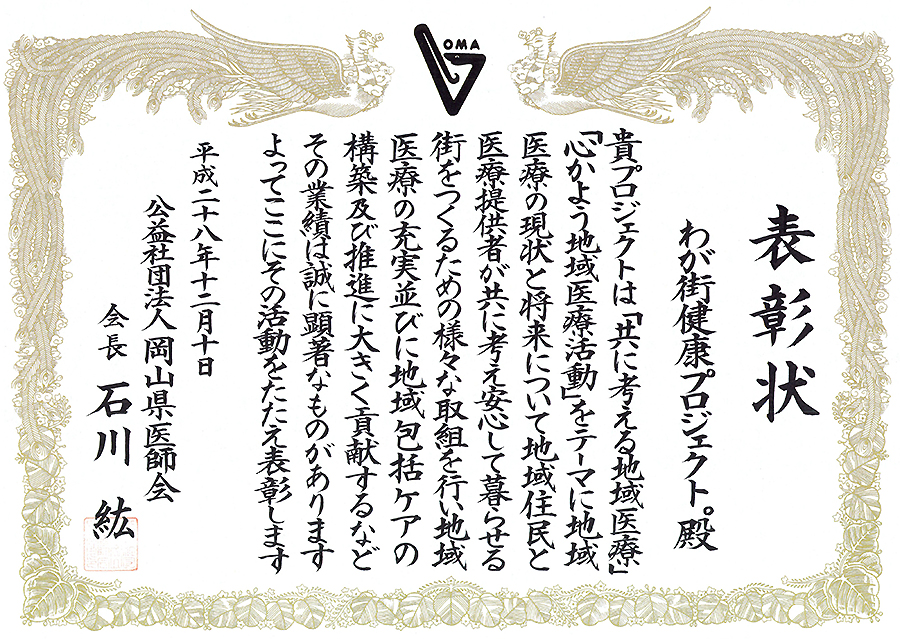 OMA
表彰状
わが街健康プロジェクト。殿
貴プロジェクトは「共に考える地域医療」
「心かよう地域医療活動」をテーマに地域
医療の現状と将来について地域住民と
医療提供者が共に考え安心して暮らせる
街をつくるための様々な取組を行い地域
医療の充実並びに地域包括ケアの
構築及び推進に大きく貢献するなど
その業績は誠に顕著なものがあります
よってここにその活動をたたえ表彰します
平成二十八年十二月十日
公益社団法人岡山県医師会
会長 石川 紘